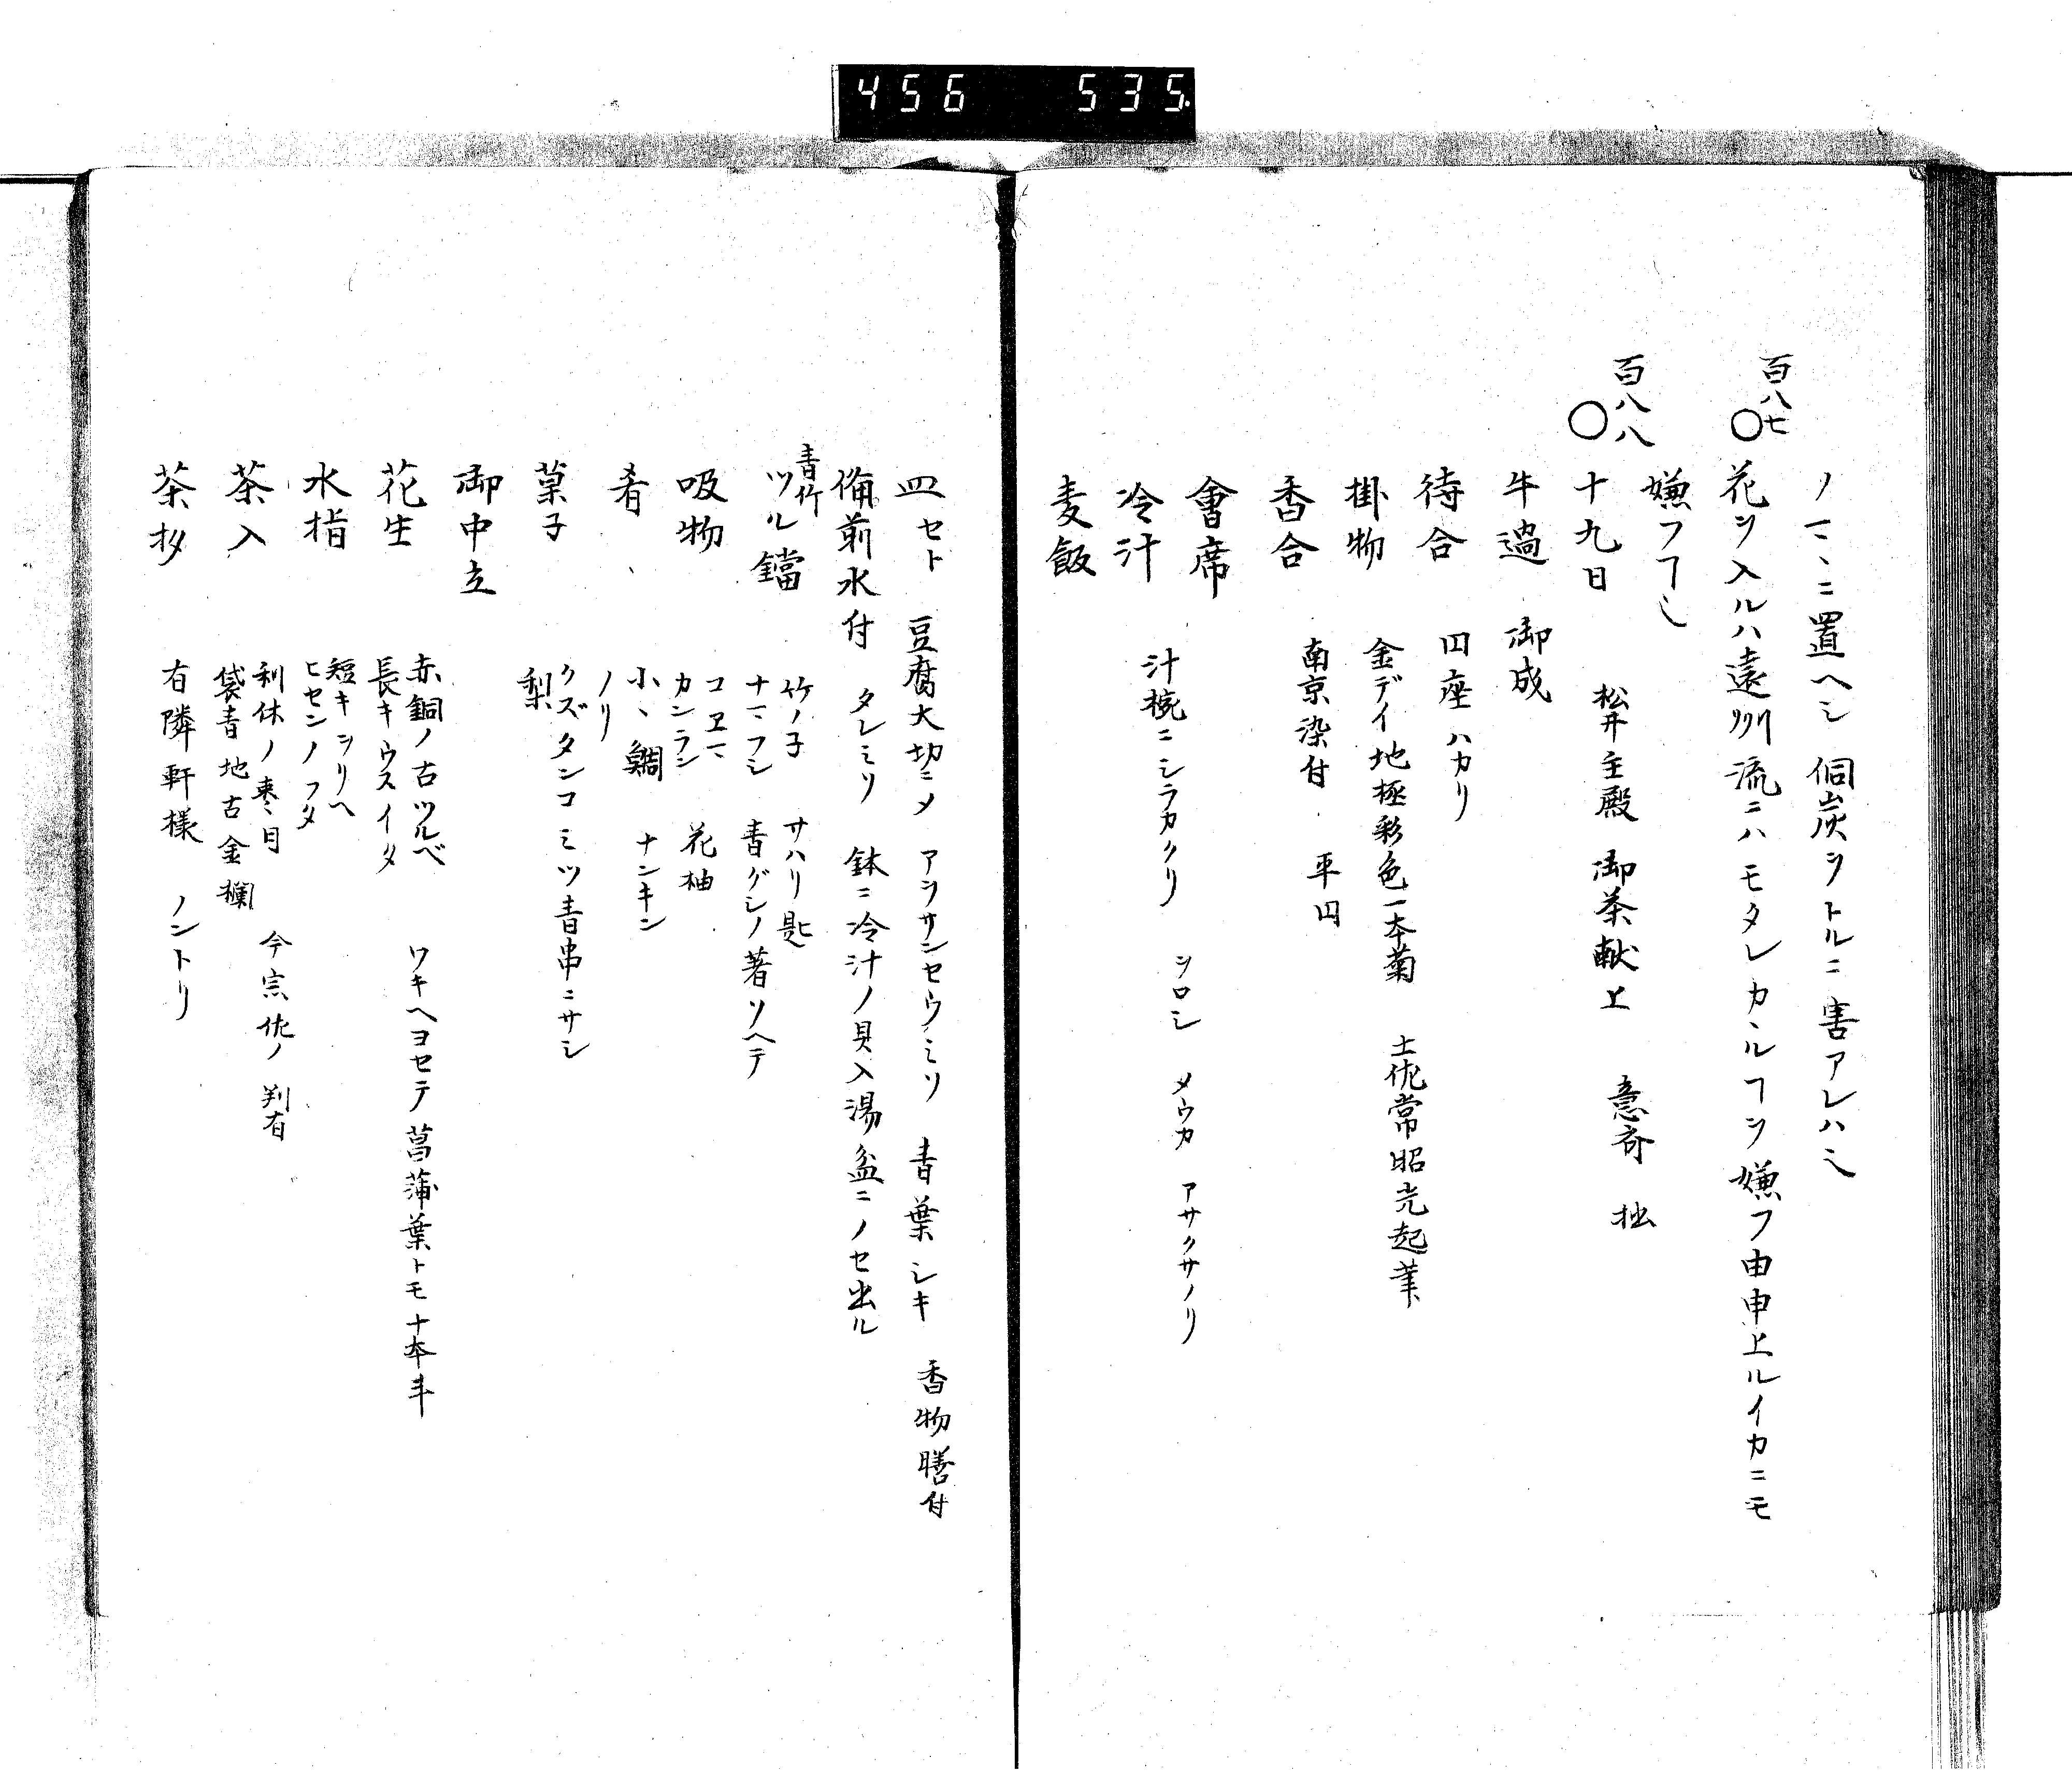 456 535.
ノマヽニ置ヘシ 侗炭ヲトルニ害アレハミ
百八七
○花ヲ入ルハ遠州流ニハモタレカヽルヿヲ嫌フ由申上ルイカニモ
嫌フヿミ
百八八
○十九日 松井主殿 御茶献上 意斎 拙
牛過 御成
待合 円座ハカリ
掛物 金デイ地極彩色一本菊 土佐常昭光起筆
香合 南京染付 平円
會席
冷汁 汁椀ニシラカクリ シロシ メウカ アサクサノリ
麦飯
皿セト 豆腐大切ニメ アンサンセウミソ 青葉シキ 香物膳付
備前水付 タレミソ 鉢ニ冷汁ノ具入湯盆ニノセ出ル
青竹
ツル鐺 竹ノ子 サハリ匙
ナマフシ 青グシノ著ソヘテ
吸物 コヱマ
カンラン 花柚
肴 小鯛 ナンキン
ノリ
菓子 クズタンコ ミツ青串ニサシ
梨
御中立
花生 赤銅ノ古ツルベ ワキヘヨセテ菖蒲葉トモ十本斗
長キウスイタ
水指 短キツリヘ
ヒセンノフタ
茶入 利休ノ棗 目 今宗佐ノ判有
袋青地古金襴
茶杓 有隣軒様 ノントリ